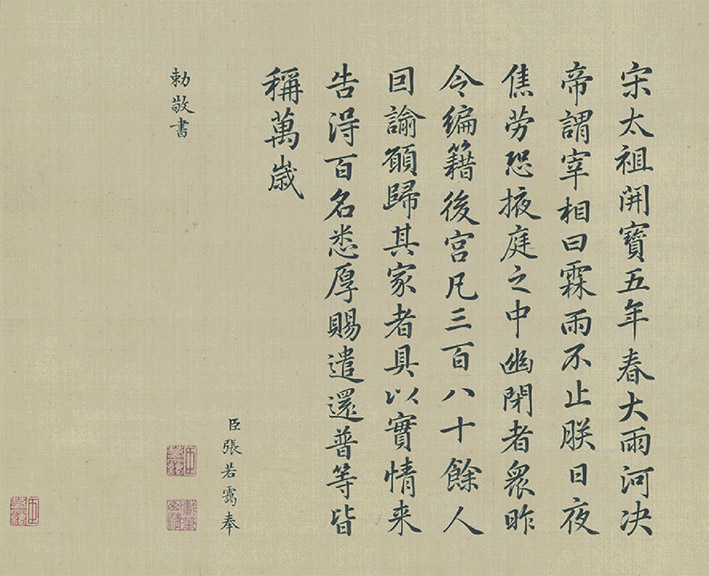 宋太祖開寶五年春大雨河决
帝謂宰相曰霖雨不止朕日夜
焦劳恐掖庭之中幽閉者衆昨
令編籍後宫凡三百八十餘人
囙諭願歸其家者具以實情来
告淂百名悉厚賜遣還普等皆
稱萬歲
臣張若靄奉
勅敬書